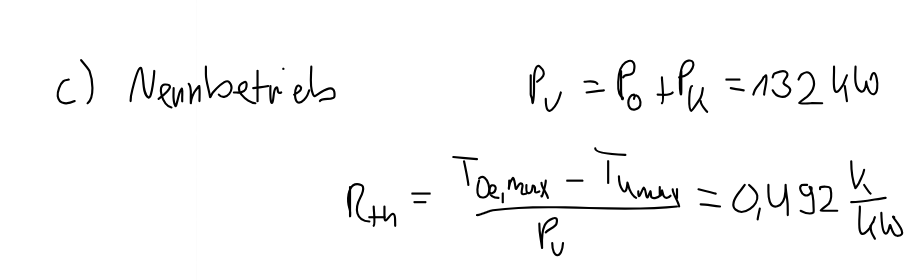 c) Nennbetrieb P_v = P_0 + P_k = 132 kW
R_th = (T_Oe,max − T_U max) / P_v = 0,492 K/kW